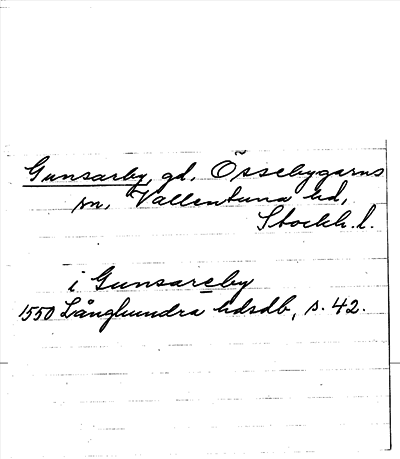 Gunsarby, gd, Össebygarns
sn, Vallentuna hd,
Stockh. l.
i Gunsareby
1550 Långhundra hdsdb, s. 42.